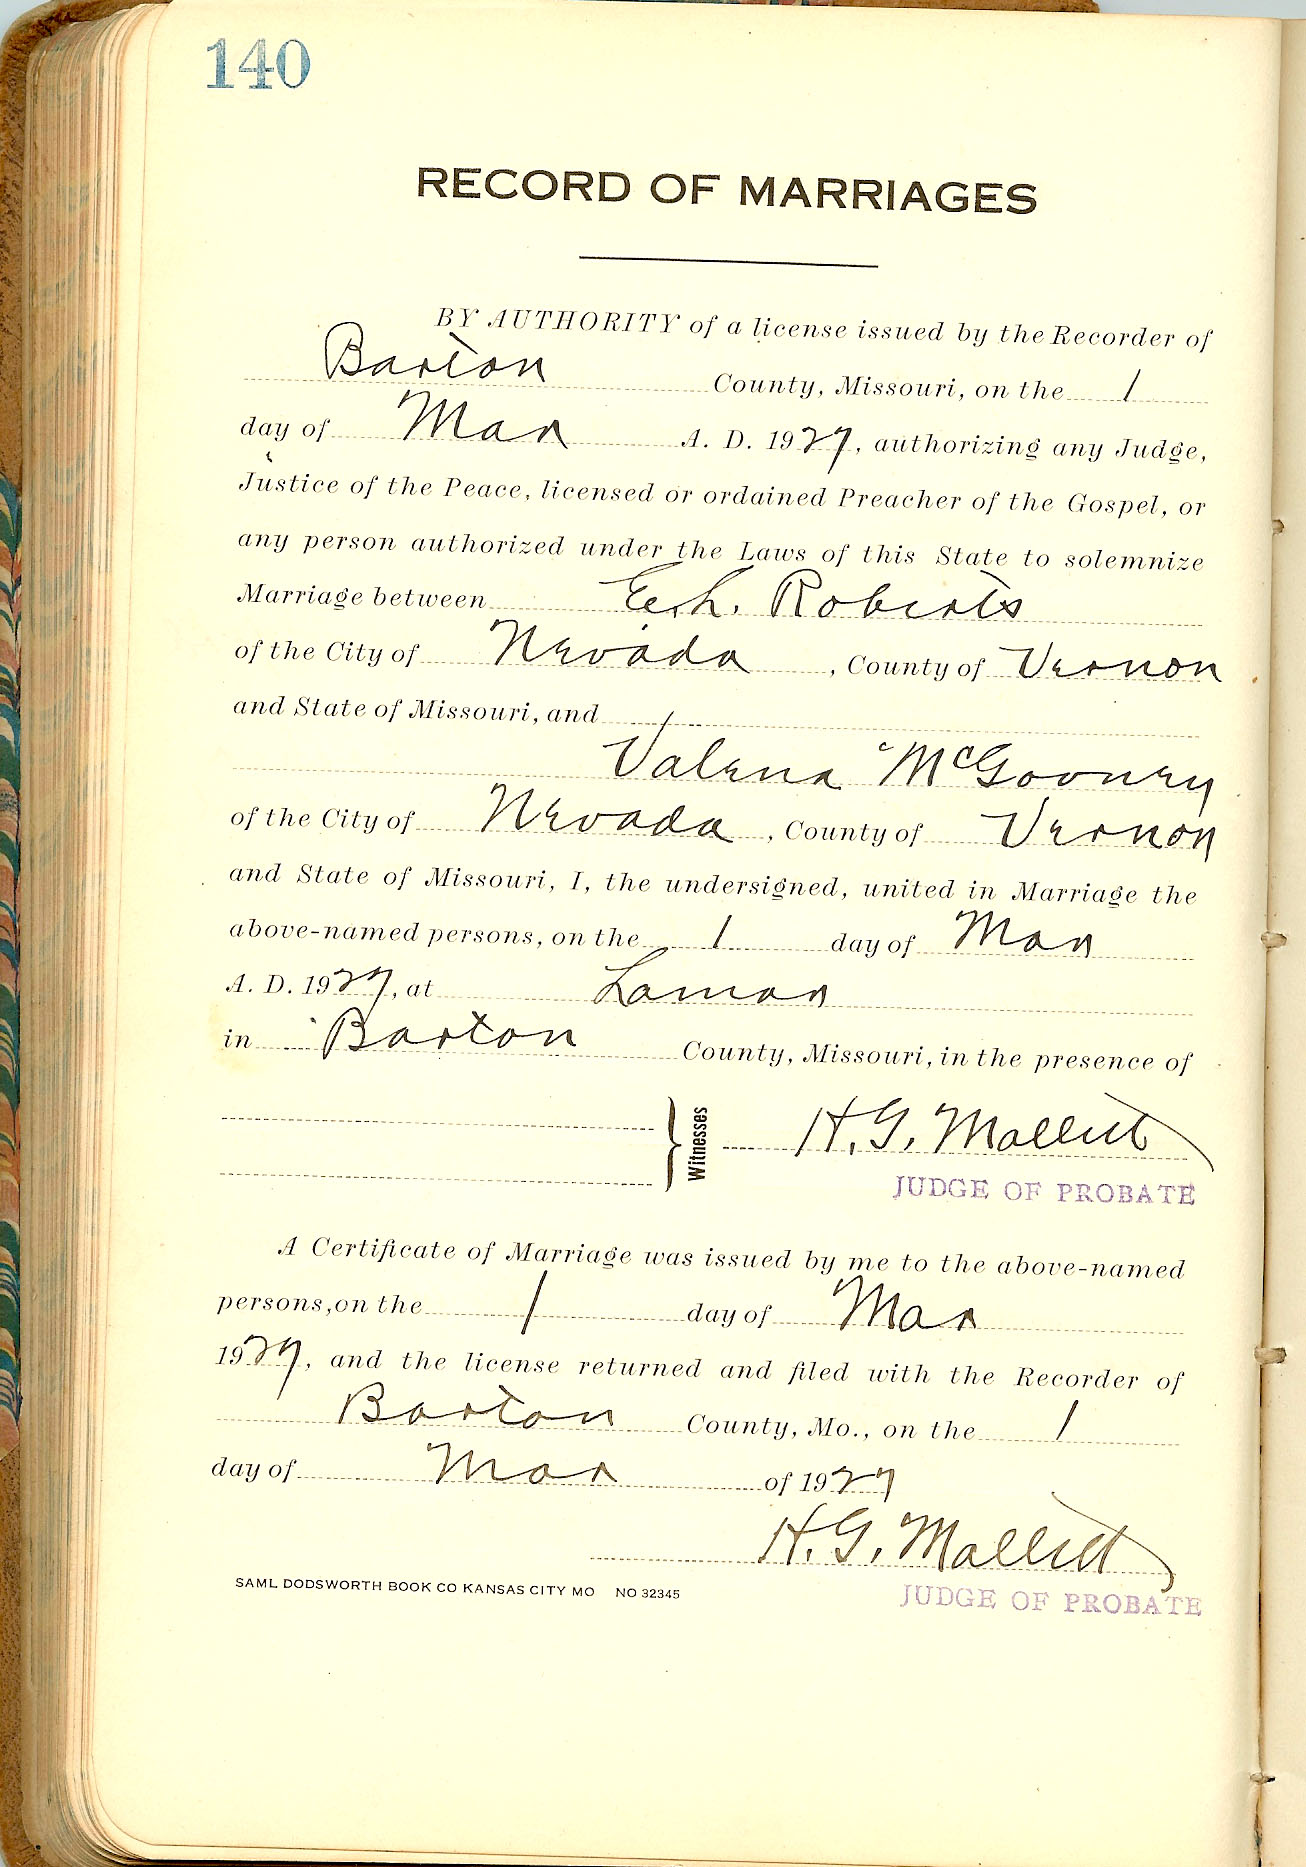 140
RECORD OF MARRIAGES
BY AUTHORITY of a license issued by the Recorder of
Barton County, Missouri, on the 1
day of Mar A. D. 1927, authorizing any Judge,
Justice of the Peace, licensed or ordained Preacher of the Gospel, or
any person authorized under the Laws of this State to solemnize
Marriage between E. L. Roberts
of the City of Nevada, County of Vernon
and State of Missouri, and
Valena McGovney
of the City of Nevada, County of Vernon
and State of Missouri, I, the undersigned, united in Marriage the
above-named persons, on the 1 day of Mar
A. D. 1927, at Lamar
in Barton County, Missouri, in the presence of
Witnesses H. G. Mallitt
JUDGE OF PROBATE
A Certificate of Marriage was issued by me to the above-named
persons, on the 1 day of Mar
1927, and the license returned and filed with the Recorder of
Barton County, Mo., on the 1
day of Mar of 1927
H. G. Mallitt
JUDGE OF PROBATE
SAML DODSWORTH BOOK CO KANSAS CITY MO NO 32345